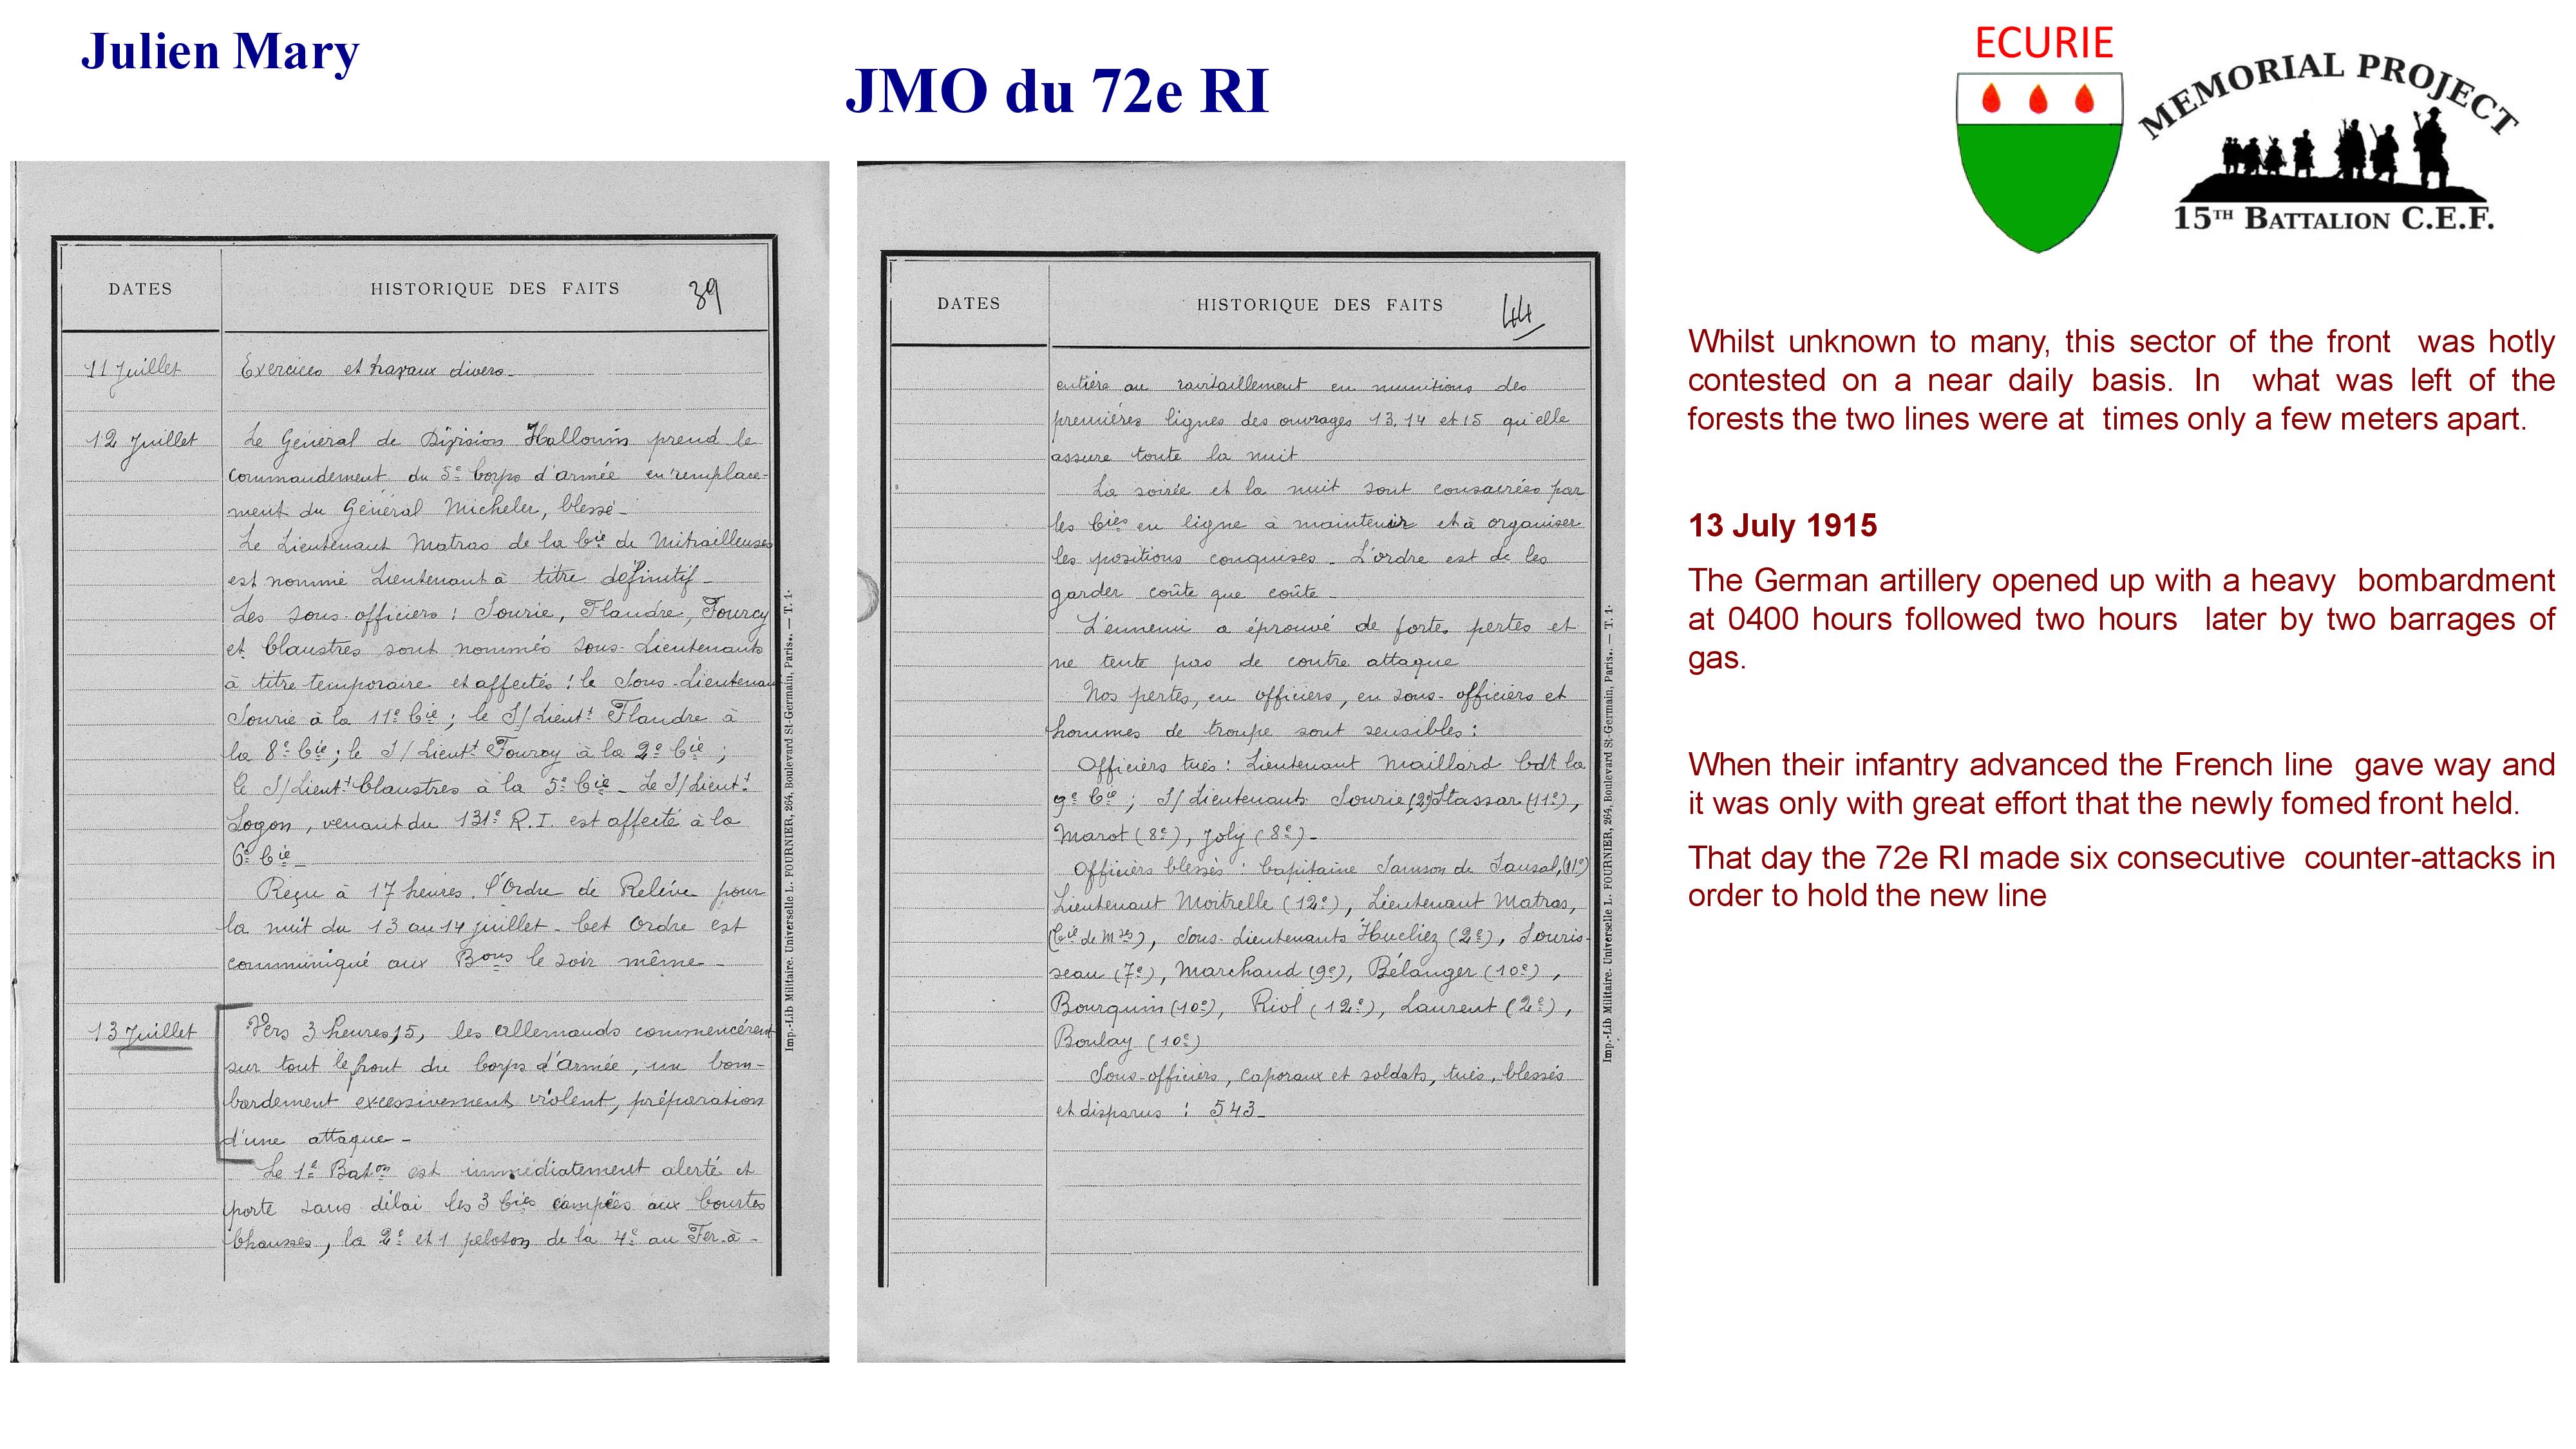 Julien Mary
JMO du 72e RI
ECURIE
MEMORIAL PROJECT
15TH BATTALION C.E.F.
DATES
HISTORIQUE DES FAITS
39
11 Juillet
Exercices et travaux divers_
12 Juillet
Le Général de Division Hallouin prend le
commandement du 5e Corps d'armée en remplace-
ment du Général Micheler, blessé_
Le Lieutenant Matras de la Cie de Mitrailleuses
est nommé Lieutenant à titre définitif_
Les sous-officiers : Sourie, Flandre, Fourcy
et Claustres sont nommés sous-Lieutenants
à titre temporaire et affectés : le Sous-Lieutenant
Sourie à la 11e Cie ; le S/Lieutt Flandre à
la 8e Cie ; le S/Lieutt Fourcy à la 2e Cie ;
le S/Lieutt Claustres à la 5e Cie_ Le S/Lieutt
Logon, venant du 131e R.I. est affecté à la
6e Cie_
Reçu à 17 heures, l'Ordre de Relève pour
la nuit du 13 au 14 juillet_ Cet Ordre est
communiqué aux Bons le soir même_
13 Juillet
Vers 3 heures,15, les allemands commencèrent
sur tout le front du Corps d'Armée, un bom-
bardement excessivement violent, préparation
d'une attaque_
Le 1e Baton est immédiatement alerté et
porte sans délai les 3 Cies campées aux Courtes
Chausses, la 2e et 1 peloton de la 4e au Fer-à-
Imp.-Lib Militaire. Universelle L. FOURNIER, 264, Boulevard St-Germain, Paris.. — T. 1·
DATES
HISTORIQUE DES FAITS
44
entière au ravitaillement en munitions des
premières lignes des ouvrages 13, 14 et 15 qu'elle
assure toute la nuit
La soirée et la nuit sont consacrées par
les Cies en ligne à maintenir et à organiser
les positions conquises_ L'ordre est de les
garder coûte que coûte_
L'ennemi a éprouvé de fortes pertes et
ne tente pas de contre attaque
Nos pertes, en officiers, en sous-officiers et
hommes de troupe sont sensibles :
Officiers tués : Lieutenant Maillard Cdt la
9e Cie ; S/Lieutenants Sourie (2e) Stassar (11e),
Marot (8e), Joly (8e)_
Officiers blessés : Capitaine Samson de Sansal, (11e)
Lieutenant Moitrelle (12e), Lieutenant Matras,
(Cie de Mses), Sous-Lieutenants Hucliez (2e), Souris-
seau (7e), Marchaud (9e), Bélanger (10e),
Bourquin (10e), Riol (12e), Laurent (2e),
Boulay (10e)
Sous-officiers, caporaux et soldats, tués, blessés
et disparus : 543_
Imp.-Lib Militaire. Universelle L. FOURNIER, 264, Boulevard St-Germain, Paris.. — T. 1·
Whilst unknown to many, this sector of the front was hotly
contested on a near daily basis. In what was left of the
forests the two lines were at times only a few meters apart.
13 July 1915
The German artillery opened up with a heavy bombardment
at 0400 hours followed two hours later by two barrages of
gas.
When their infantry advanced the French line gave way and
it was only with great effort that the newly fomed front held.
That day the 72e RI made six consecutive counter-attacks in
order to hold the new line